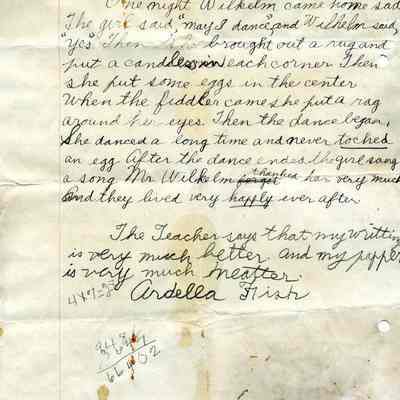 One night Wilhelm came home sad
The girl said "may I dance", and Wilhelm said,
"yes". Then brought out a rug and
put a candles in each corner. Then
she put some eggs in the center.
When the fiddler came she put a rag
around her eyes. Then the dance began.
She danced a long time and never toched
an egg. After the dance endes the girl sang
a song. Mr Wilhelm forget thanked har very much
And they lived very haply ever after.
The Teacher says that my writting
is very much better. And my papper
is very much neatter.
Ardella Fish